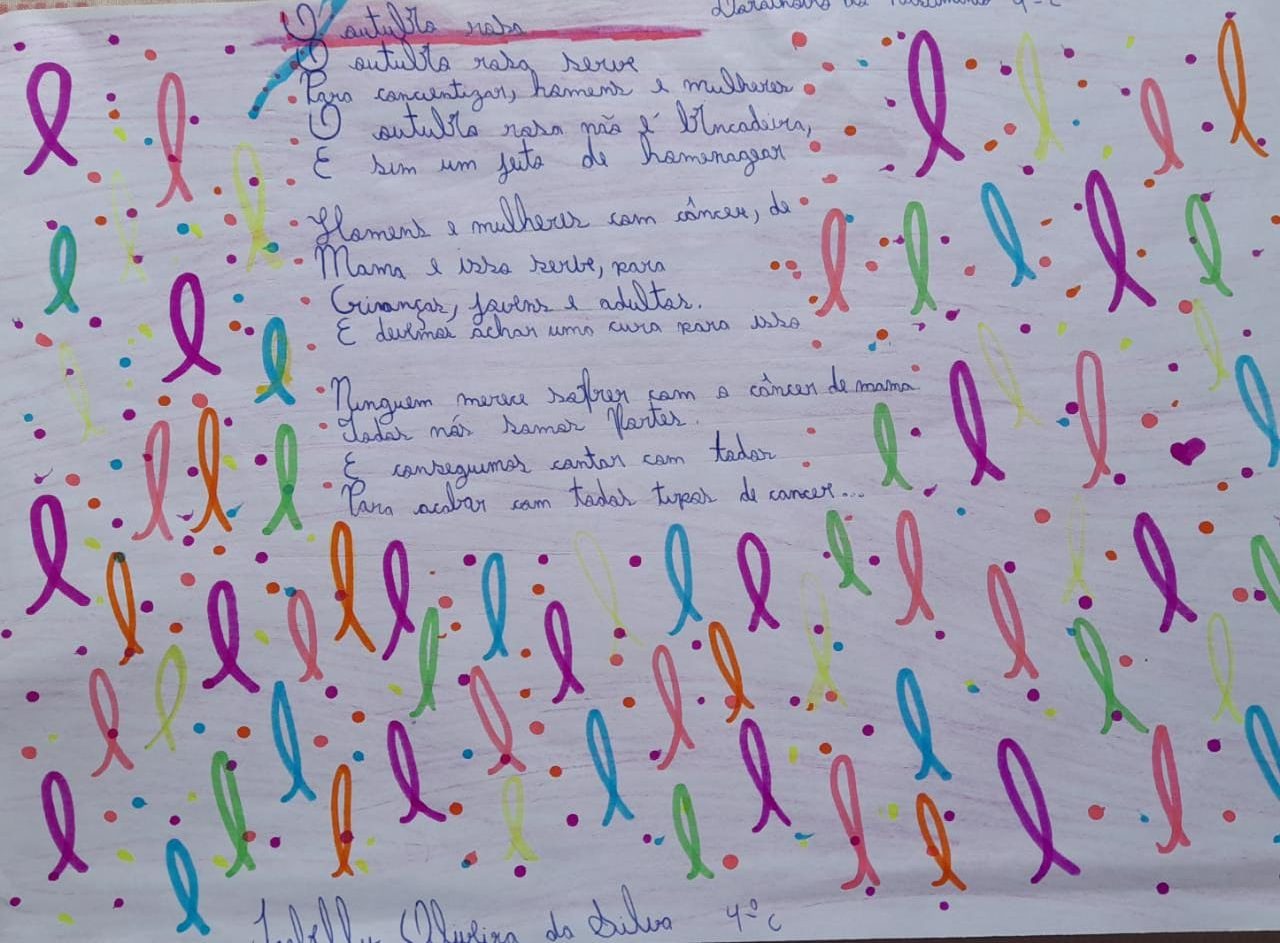 do Nascimento 4º C
O outubro rosa
O outubro rosa serve
Para concientizar, homens e mulheres
O outubro rosa não é brincadeira,
E sim um jeito de homenagear
Homens e mulheres com câncer, de
Mama e isso serve, para
Crianças, jovens e adultos.
E devemos achar uma cura para isso
Ninguem merece sofrer com o câncer de mama
Todos nós somos Fortes.
E conseguimos contar com todos
Para acabar com todos tipos de cancer...
Isabelly Oliveira da Silva 4º C